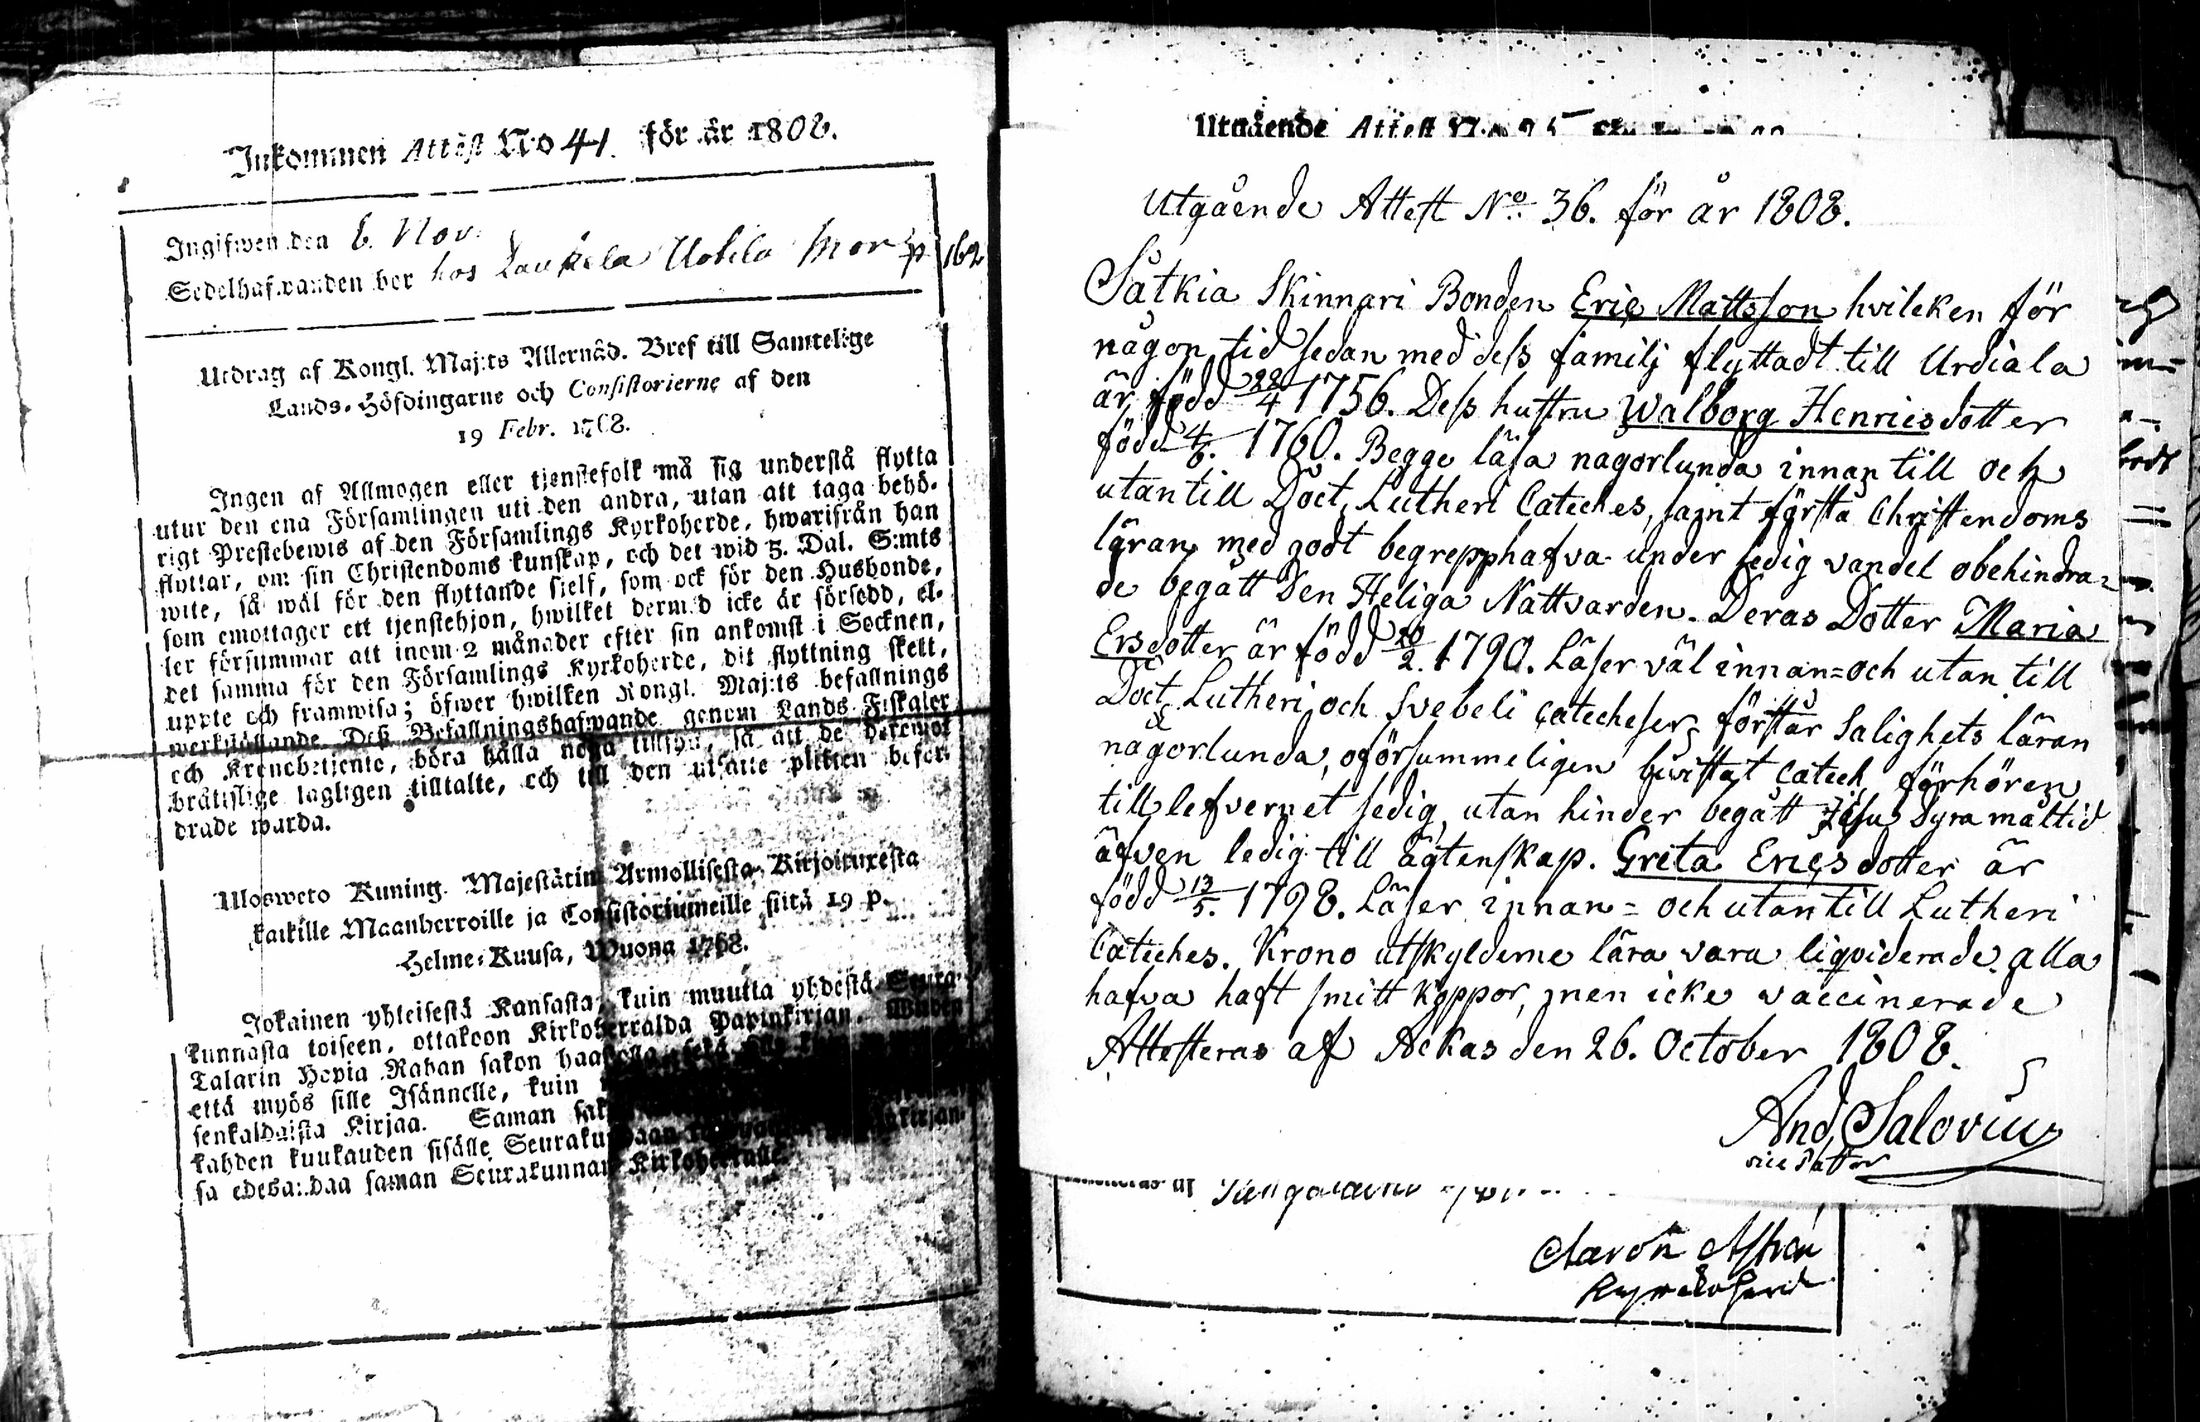 Inkommen Attest No 41. för år 1808.
Ingifwen den 6. Nov.
Sedelhafwanden bor hos Laukela Uotila Mor p 162
Utdrag af Kongl. Maj:ts Allernåd. Bref till Samtelige
Lands-Höfdingarne och Consistorierne af den
19 Febr. 1768.
Ingen af Allmogen eller tjenstefolk må sig understå flytta
utur den ena Församlingen uti den andra, utan att taga behö-
rigt Prestebewis af den Församlings Kyrkoherde, hwarifrån han
flyttar, om sin Christendoms kunskap, och det wid 5. Dal. S:mts
wite, så wäl för den flyttande sjelf, som ock för den Husbonde,
som emottager ett tjenstehjon, hwilket dermed icke är försedd, el-
ler försummar att inom 2 månader efter sin ankomst i Socknen,
det samma för den Församlings Kyrkoherde, dit flyttning skett,
uppte och framwisa; öfwer hwilken Kongl. Maj:ts befallnings
werkställande Deß Befallningshafwande genom Lands-Fiskaler
och Kronobetjente, böra hålla noga tillsyn, så att de deremot
bråttslige lagligen tilltalte, och till den utsatte plikten befor-
drade warda.
Ulosweto Kuning. Majestätin Armollisesta Kirjoituxesta
kaikille Maanherroille ja Consistoriumeille siitä 19 p.
Helme-Kuusa, Wuona 1768.
Jokainen yhteisestä Kansasta, kuin muutta yhdestä Seura-
kunnasta toiseen, ottakoon Kirkoherralda Papinkirjan. Wiiden
Talarin Hopia Rahan sakon haastolla, sekä
että myös sille Isännelle, kuin
senkaldaista Kirjaa. Saman sak
kahden kuukauden sisälle Seurakundaan kirjan-
sa edesandaa saman Seurakunnan Kirkoherralle.
Utgående Attest No 35
Utgående Attest No. 36. för år 1808.
Såtkia Skinnari Bonden Eric Mattsson hvilcken för
någon tid sedan med dess familj flyttadt till Urdiala
är född 22/4 1756. Dess hustru Walborg Henricsdotter
född 4/6. 1760. Begge läsa nagorlunda innan till och
utan till Doct. Lutheri Cateches, samt första Christendoms
läran med godt begrepp hafva under sedig vandel obehindra=
de begått Den Heliga Nattvarden. Deras Dotter Maria
Ersdotter är född 20/2. 1790. Läser väl innan= och utan till
Doct. Lutheri och Svebeli catecheser, förstår Salighets läran
någorlunda, oförsummeligen bivistat catech. förhören
till lefvernet sedig, utan hinder begått Jesu Dyra måltid
äfven ledig till ägtenskap. Greta Ericsdotter är
född 13/5. 1798. Läser innan= och utan till Lutheri
Cateches. Krono utskylderne lära vara liqviderade. alla
hafva haft smitt koppor, men icke vaccinerade
Attesteras af Ackas den 26. October 1808.
And. Salovius
vice Pastor
Aaron Ashén
Kyrckoherde